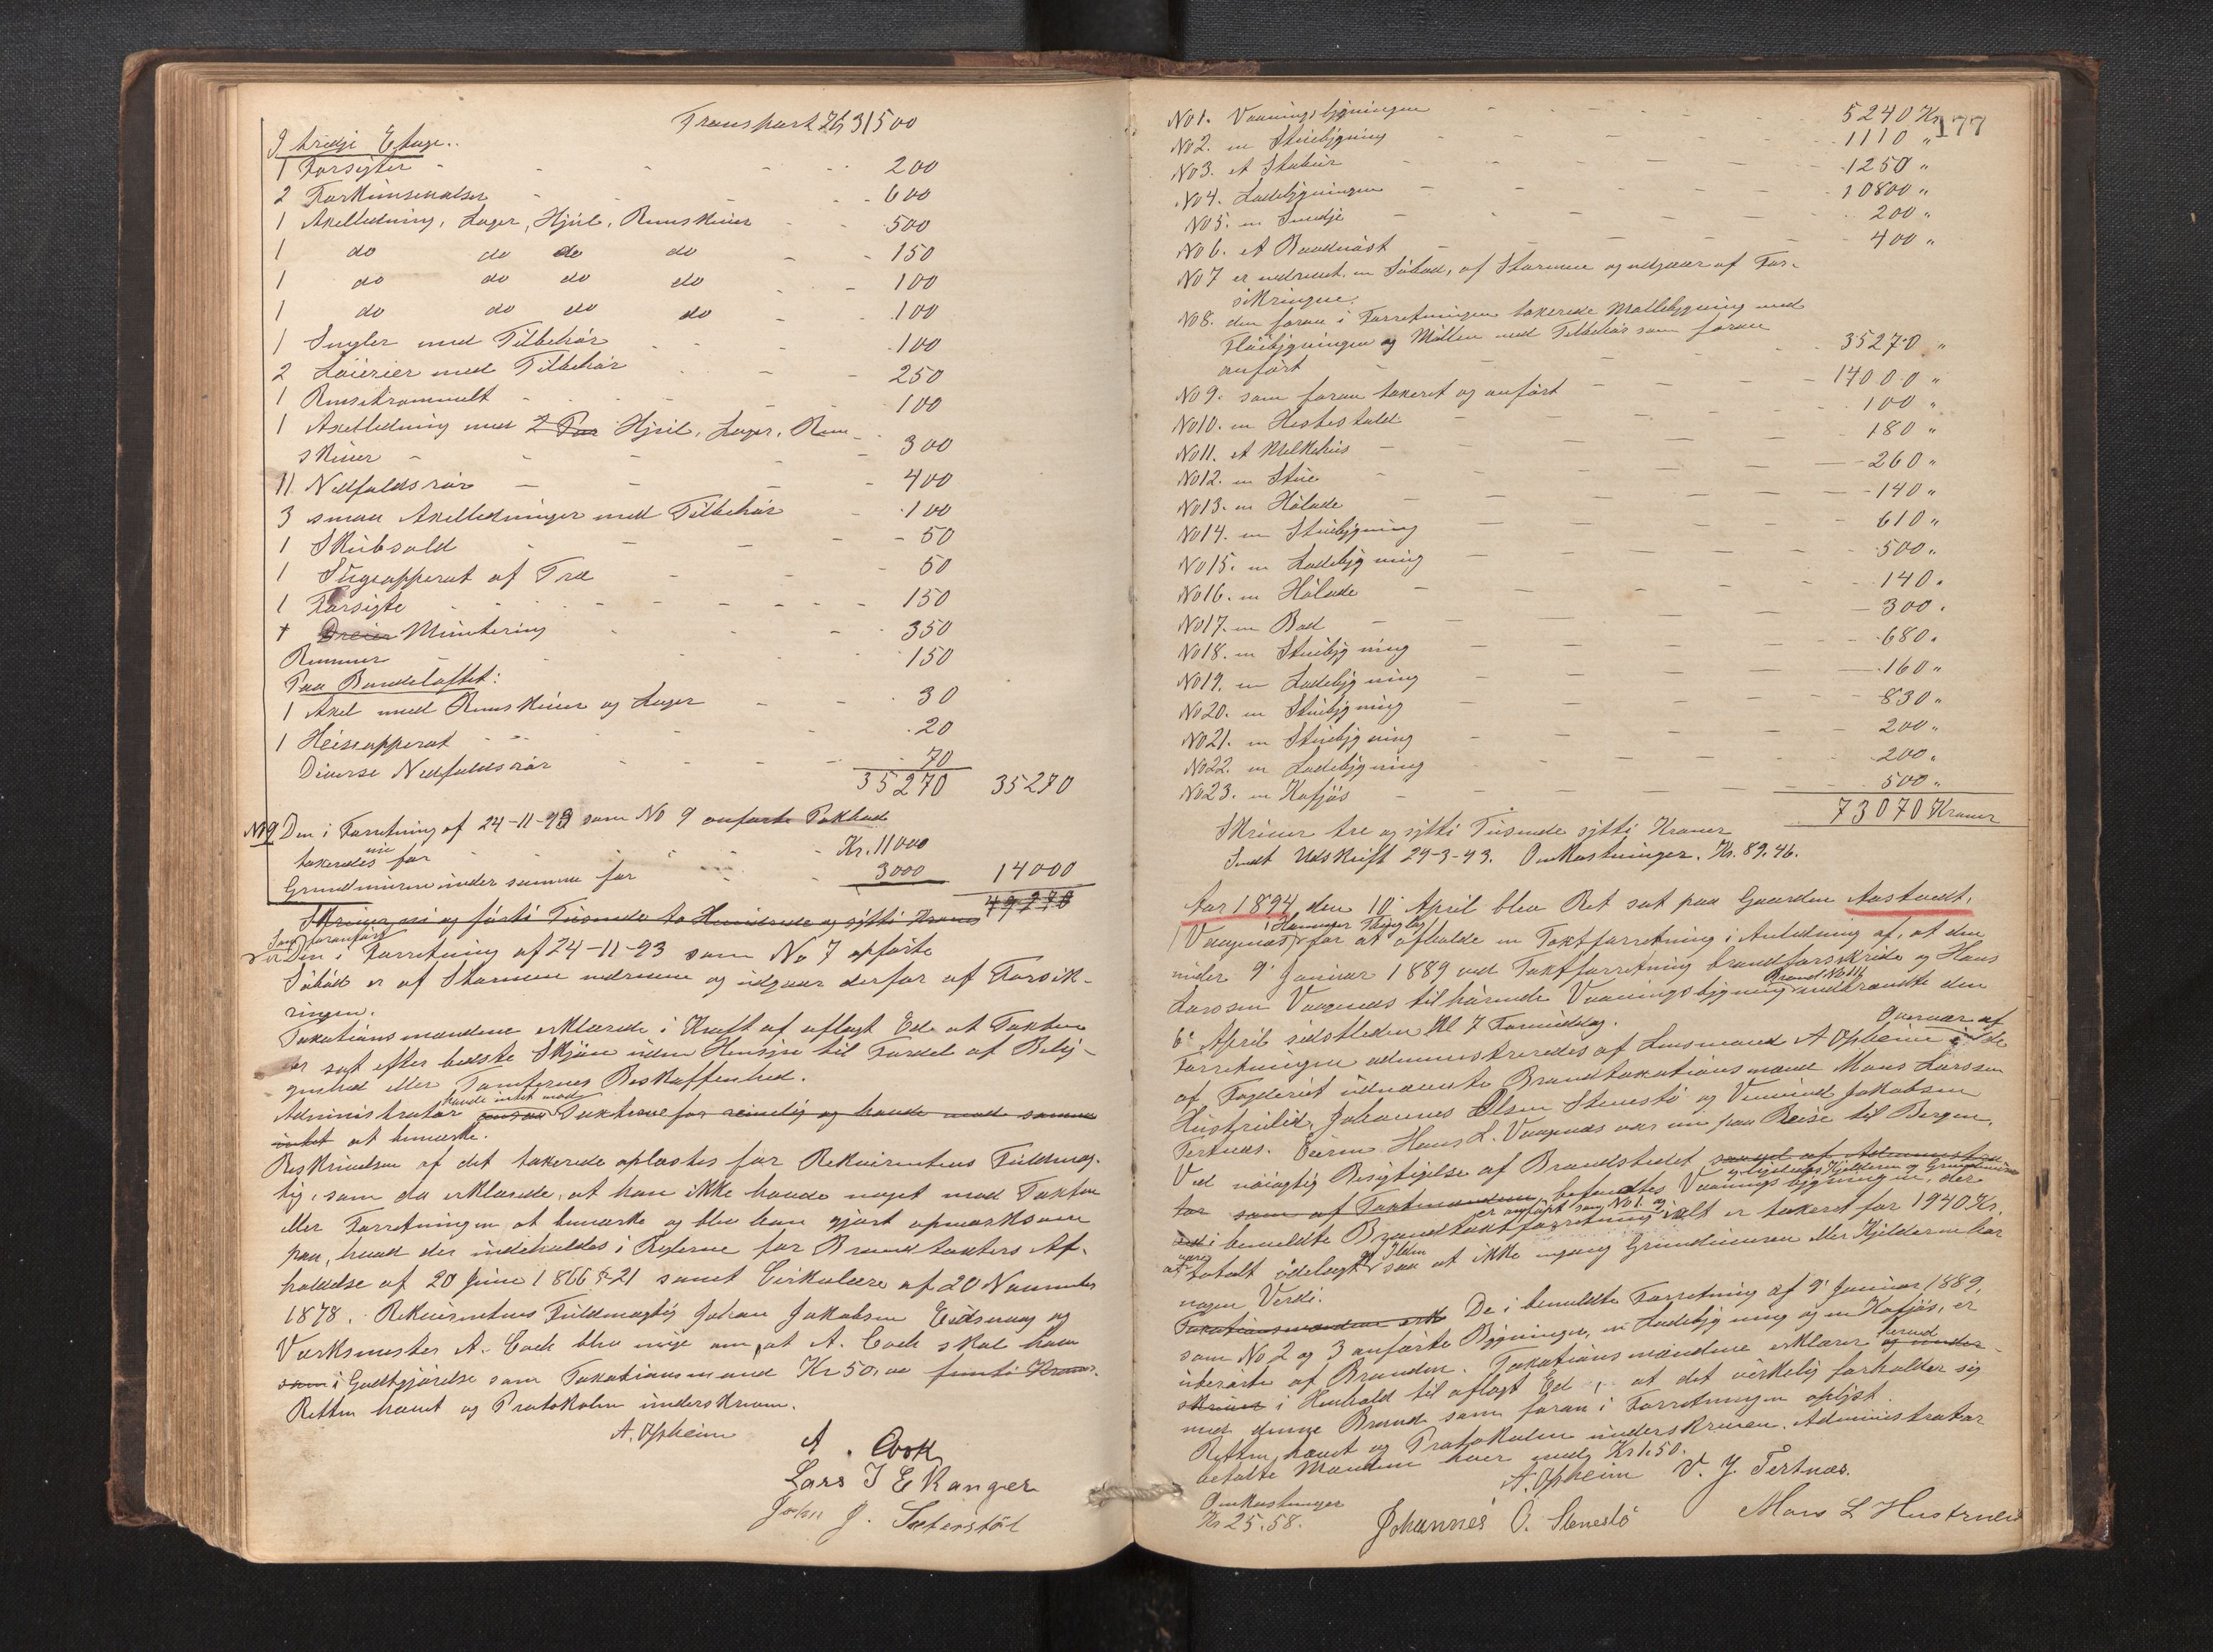 Transport Kr 31500
I tredje Etage..
1 Forsigter - 200
2 - 600
1 Axelledning, Lager, Hjul, Remskiver - 500
1 do do do do - 150
1 do do do do - 100
1 do do do do - 100
1 Snegler med Tilbehør - 100
2 med Tilbehør - 250
1 - 100
1 Axelledning med 2 Par Hjul, Lager, Rem-
skiver - 300
11 Nedfaldsrør - 400
3 smaa Axelledninger med Tilbehør - 100
1 - 50
1 Sugeapparat af Træ - 50
1 Forsigte - 150
Montering 350
Remmer - 150
Paa Bandeloftet:
1 Axel med Remskiver og Lager - 30
1 Heiseapparat - 20
Diverse Nedfaldsrør - 70
35270 35270
No 9 Den i Forretning af 24-11-93 som No 9 anførte Pakbod
taxeredes nu for - Kr. 11000
Grundmuren under samme for - 3000 14000
49270
Skriver ni og førti Tusinde to Hundrede og sytti Kroner
Som foranført
Den i Forretning af 24-11-93 som No 7 opførte
Søbod er af Stormen nedreven og udgaar derfor af Forsik-
ringen.
Taxationsmændene erklærede i Kraft af aflagt Ed at Taxten
er sat efter bedste Skjøn uden Hensyn til Fordel af Belig-
genhed eller Tomternes Beskaffenhed.
Administrator havde intet mod Taxterne for rimelig og havde mod samme
intet at bemærke.
Beskrivelsen af det taxerede oplæstes for Rekvirentens Fuldmæg-
tig, som da erklærede, at han ikke havde noget mod Taxten
eller Forretningen at bemærke og blev han gjort opmærksom
paa, hvad der indeholdes i Reglerne for Brandtaxters Af-
holdelse af 20 Juni 1866 § 21 samt Cirkulære af 20 November
1878. Rekvirentens Fuldmægtig Johan Jakobsen Eidsvaag og
Værksmester A. Cook blev enige om, at A. Cook skal have
som i Godtgjørelse som Taxationsmand Kr 50,00 femti Kroner.
Retten hævet og Protokolen underskreven.
A. Opheim
A. Cook
Lars J E Kanger
John J. Sæterstøl
177
No 1. Vaaningsbygningen - 5240 Kr
No 2. en Stuebygning - 1110 "
No 3. et Stabur - 1250 "
No 4. Ladebygningen - 10800 "
No 5. en Smedje - 200 "
No 6. et Baadnøst - 400 "
No 7 er nedrevet, en Søbod, af Stormen og udgaar af For-
sikringen.
No 8. den foran i Forretningen taxerede Møllebygning med
Fløibygningen og Møllen med Tilbehør som foran
anført - 35270 "
No 9. som foran taxeret og anført - 14000 "
No 10. en Hestestald - 100 "
No 11. et Melkehus - 180 "
No 12. en Stue - 260 "
No 13. en Hølade - 140 "
No 14. en Stuebygning - 610 "
No 15. en Ladebygning - 500 "
No 16. en Hølade - 140 "
No 17. en Bod - 300 "
No 18. en Stuebygning - 680 "
No 19. en Ladebygning - 160 "
No 20. en Stuebygning - 830 "
No 21. en Stuebygning - 200 "
No 22. en Ladebygning - 200 "
No 23. en Kofjøs - 500 "
73070 Kroner
Skriver tre og sytti Tusinde sytti Kroner
Sendt Udskrift 29-3-93. Omkostninger. Kr. 89.46.
Aar 1894 den 10 April blev Ret sat paa Gaarden Aastvedt,
i Hammer Thinglag
Vaagenæs, for at afholde en Taxtforretning i Anledning af, at den
under 9 Januar 1889 ved Taxtforretning brandforsikrede og Hans
Larssen Vaagenæs tilhørende Vaaningsbygning Brand No 111 nedbrændte den
6 April sidstleden Kl 7 Formiddag.
Forretningen administreredes af Lensmand A Opheim i Overvær af de
af Fogderiet udnævnte Brandtaxationsmænd Mons Larssen
Hustrulid, Johannes Olsen Stenestø og Vemund Jakobsen
Tertnæs. Eieren Hans L. Vaagenæs var nu paa Reise til Bergen.
Ved nøiagtig Besigtigelse af Brandstedet saavel af Administra-
tor som af Taxtmændene, befandtes Vaaningsbygningen, der
ligeledes Kjelderen og Grundmuren
i bemeldte Brandtaxtforretning er anført som No 1 og ialt er taxeret for 1940 Kr.
at være totalt ødelagt af Ilden saa at ikke engang Grundmuren eller Kjelderne har
nogen Verdi.
Taxationsmændene erk De i bemeldte Forretning af 9 Januar 1889,
som No 2 og 3 anførte Bygninger, en Ladebygning og en Kofjøs, er
uberørte af Branden. Taxationsmændene erklærer herved og under-
skriver i Henhold til aflagt Ed, at det virkelig forholder sig
med denne Brand som foran i Forretningen oplyst.
Retten hævet og Protokolen underskreven. Administrator
betalte Mændene hver med Kr 1.50.
A. Opheim V. J. Tertnæs.
Omkostninger
Kr 25.58.
Johannes O. Stenestø Mons L Hustrulid